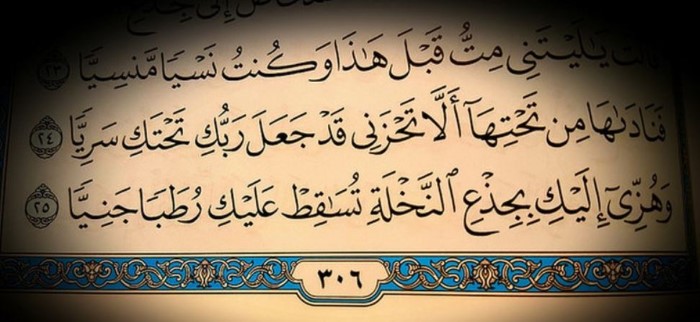 إِلَىٰ جِذْعِ
قَالَتْ يَٰلَيْتَنِى مِتُّ قَبْلَ هَٰذَا وَكُنتُ نَسْيًا مَّنسِيًّا ٢٣
فَنَادَىٰهَا مِن تَحْتِهَآ أَلَّا تَحْزَنِى قَدْ جَعَلَ رَبُّكِ تَحْتَكِ سَرِيًّا ٢٤
وَهُزِّىٓ إِلَيْكِ بِجِذْعِ ٱلنَّخْلَةِ تُسَٰقِطْ عَلَيْكِ رُطَبًا جَنِيًّا ٢٥
٣٠٦